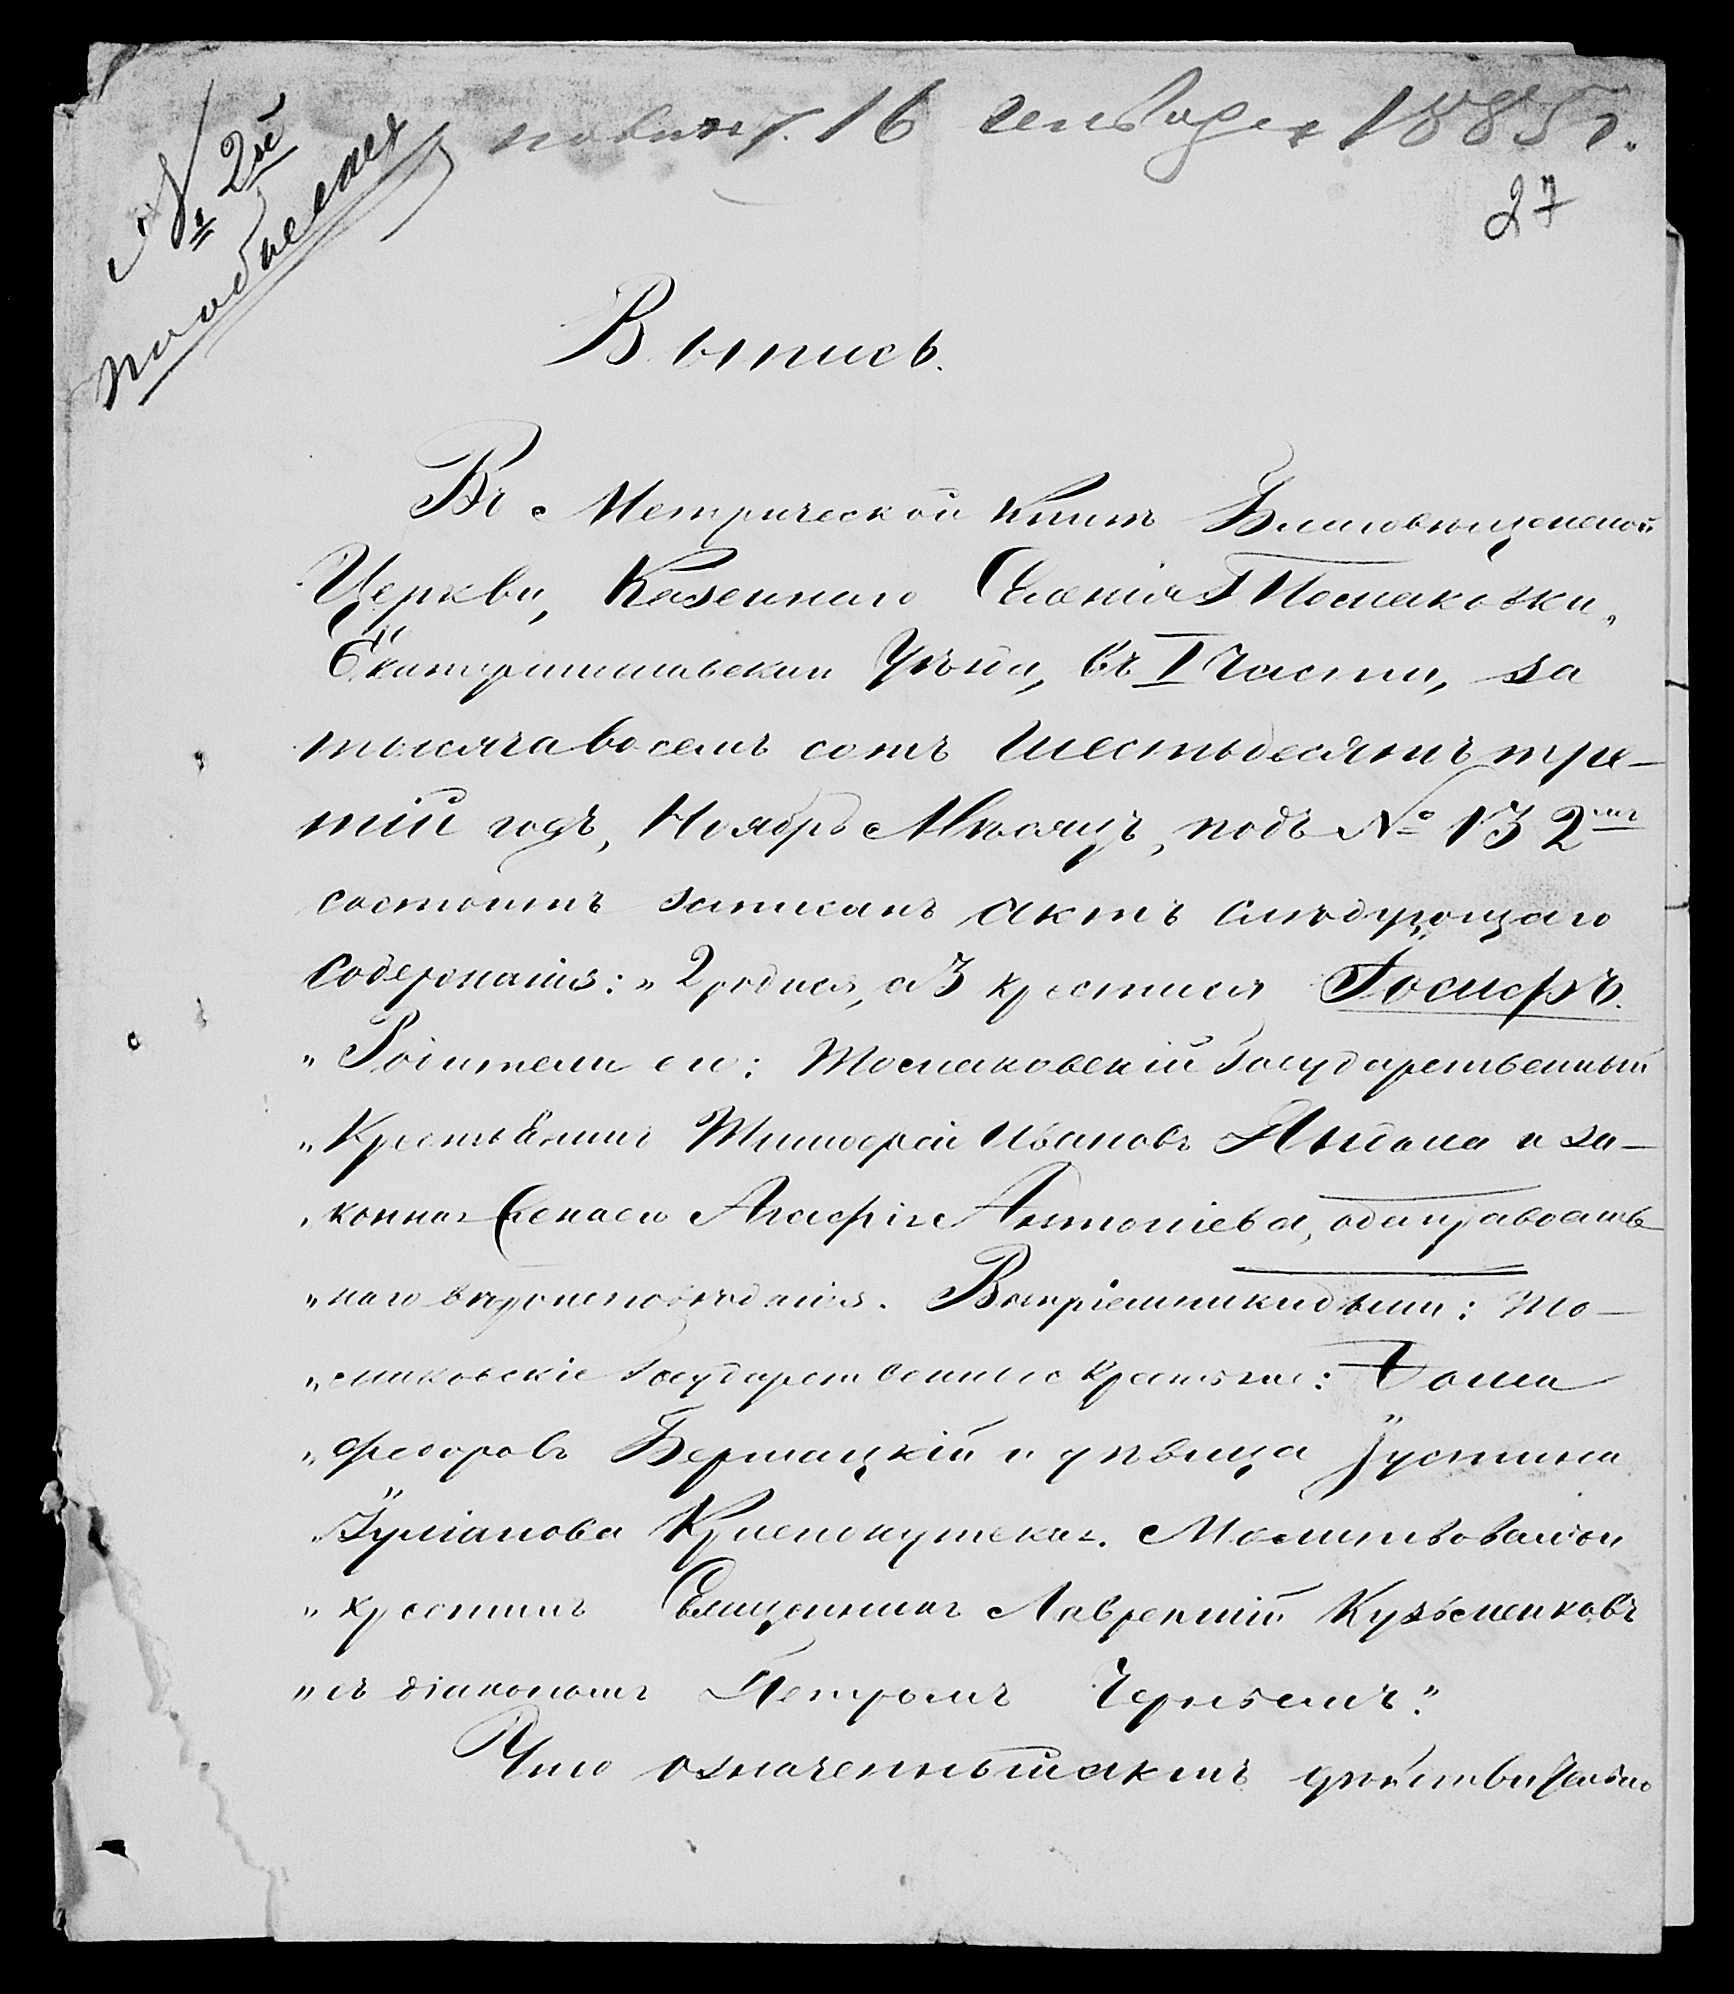 № 2й
16 января 1885 г.
27
Выпись.
Въ Метрической Книгѣ Благовѣщенской
Церкви, Казеннаго Селенія Томаковки,
Екатеринославскаго Уѣзда, въ I части, за
тысяча восемь сотъ шестьдесятъ тре-
тій годъ, Ноябрь Мѣсяцъ, подъ № 132мъ
состоитъ записанъ актъ слѣдующаго
содержанія: „2 родился, а 3 крестился Іосифъ.
„Родители его: Томаковскій Государственный
„Крестьянинъ Тимофей Ивановъ и за-
„конная Жена его Агафія Антоніева, оба православ
„наго вѣроисповѣданія. Воспріемники были: То-
„маковскіе Государственные крестьяне: Фома
„Федоровъ Бершацкій и дѣвица Іустина
„Іуліанова. Молитвовалъ и
„крестилъ Священникъ Лаврентій Кузьменковъ
„съ діакономъ Петромъ Чернымъ."
Что означенный актъ дѣйствительно